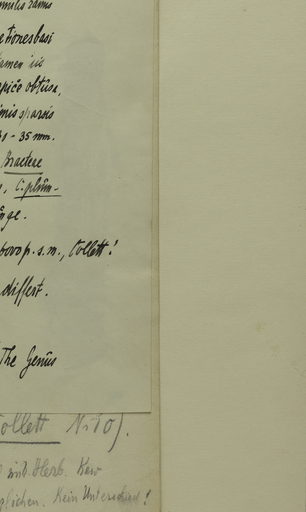 similis ramis
e Honesbasi
tamen iis
apice obtuse,
imis sparsis
31 - 35 mm.
Bractere
, C. plūm-
inge.
povo p. s. m., Collett!
differt.
The Genus
Collett N: 50).
mit Herb. Kew
glichen. Kein Unterschied!